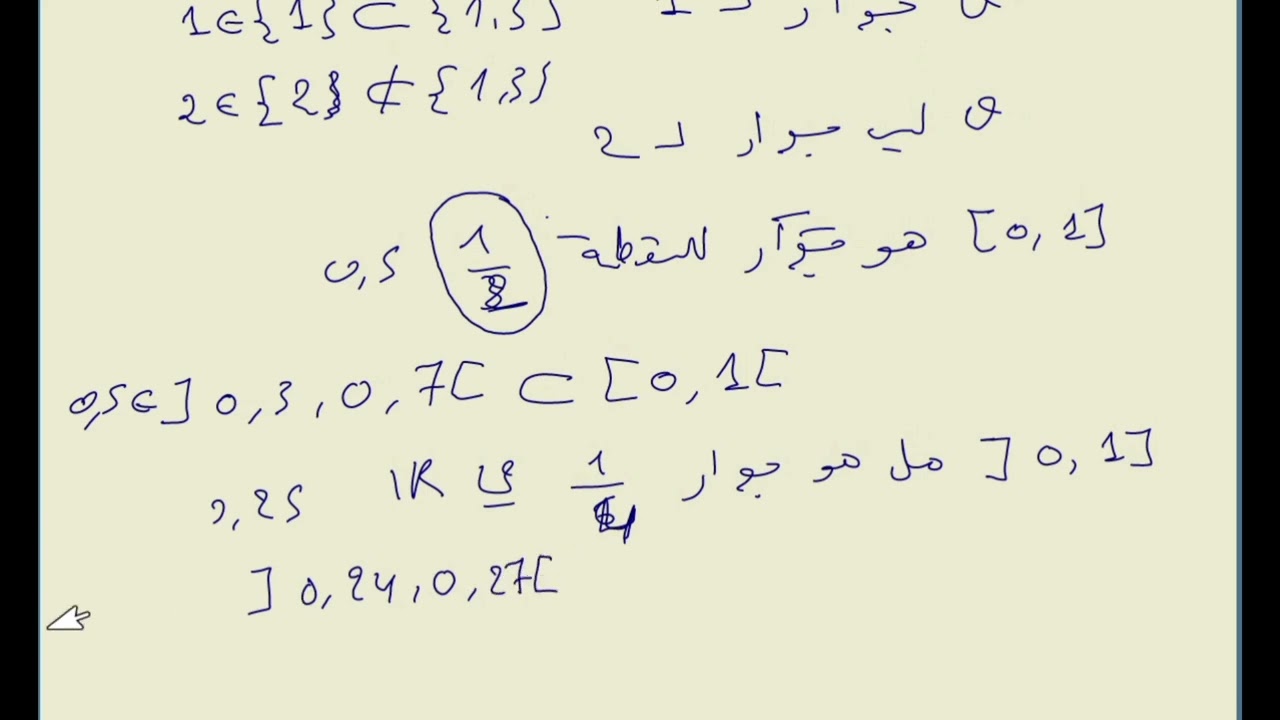 1∈{1}⊂{1,3} جوار لـ 1
2∈{2}⊄{1,3}
θ ليس جوار لـ 2
[0,1] هو جوار للنقطة 1/2 0,5
0,5∈]0,3,0,7[ ⊂ [0,1[
]0,1] هل هو جوار 1/4 في IR 0,25
]0,24,0,27[